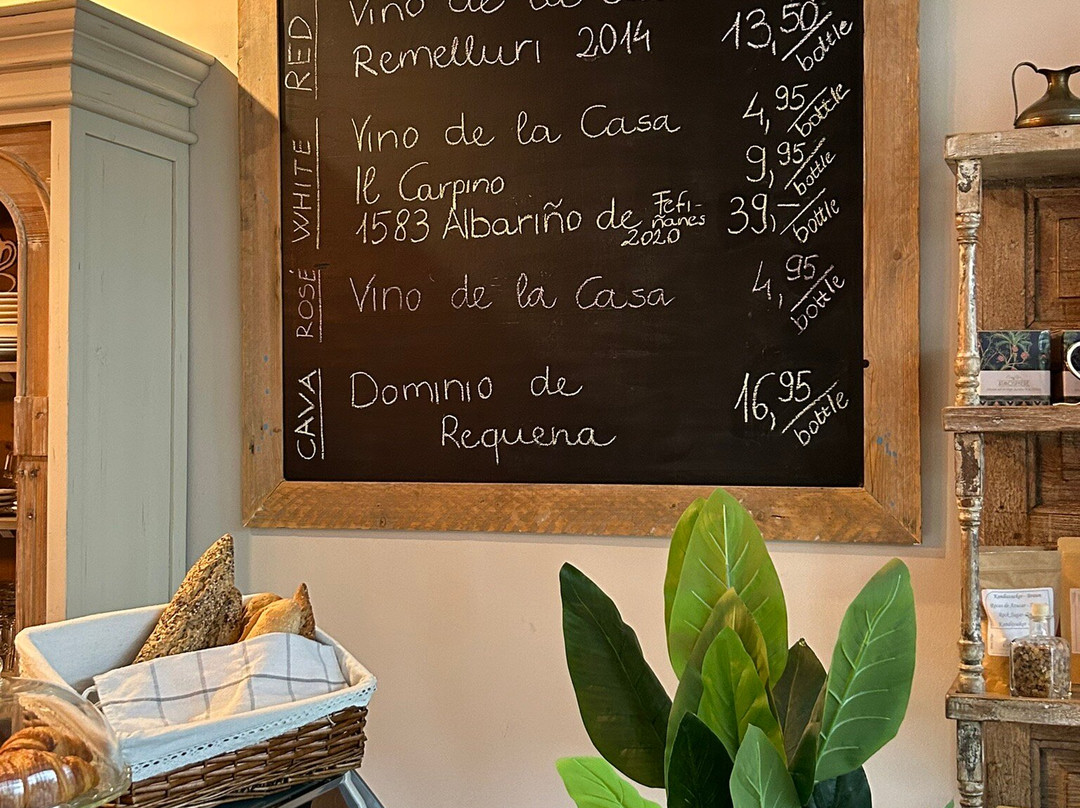 RED
Vino de la Casa
Remelluri 2014 13,50 bottle
WHITE
Vino de la Casa 4,95 bottle
Il Carpino 9,95 bottle
1583 Albariño de Fefi-
ñanes
2020 39,- bottle
ROSÉ
Vino de la Casa 4,95 bottle
CAVA
Dominio de
Requena 16,95 bottle